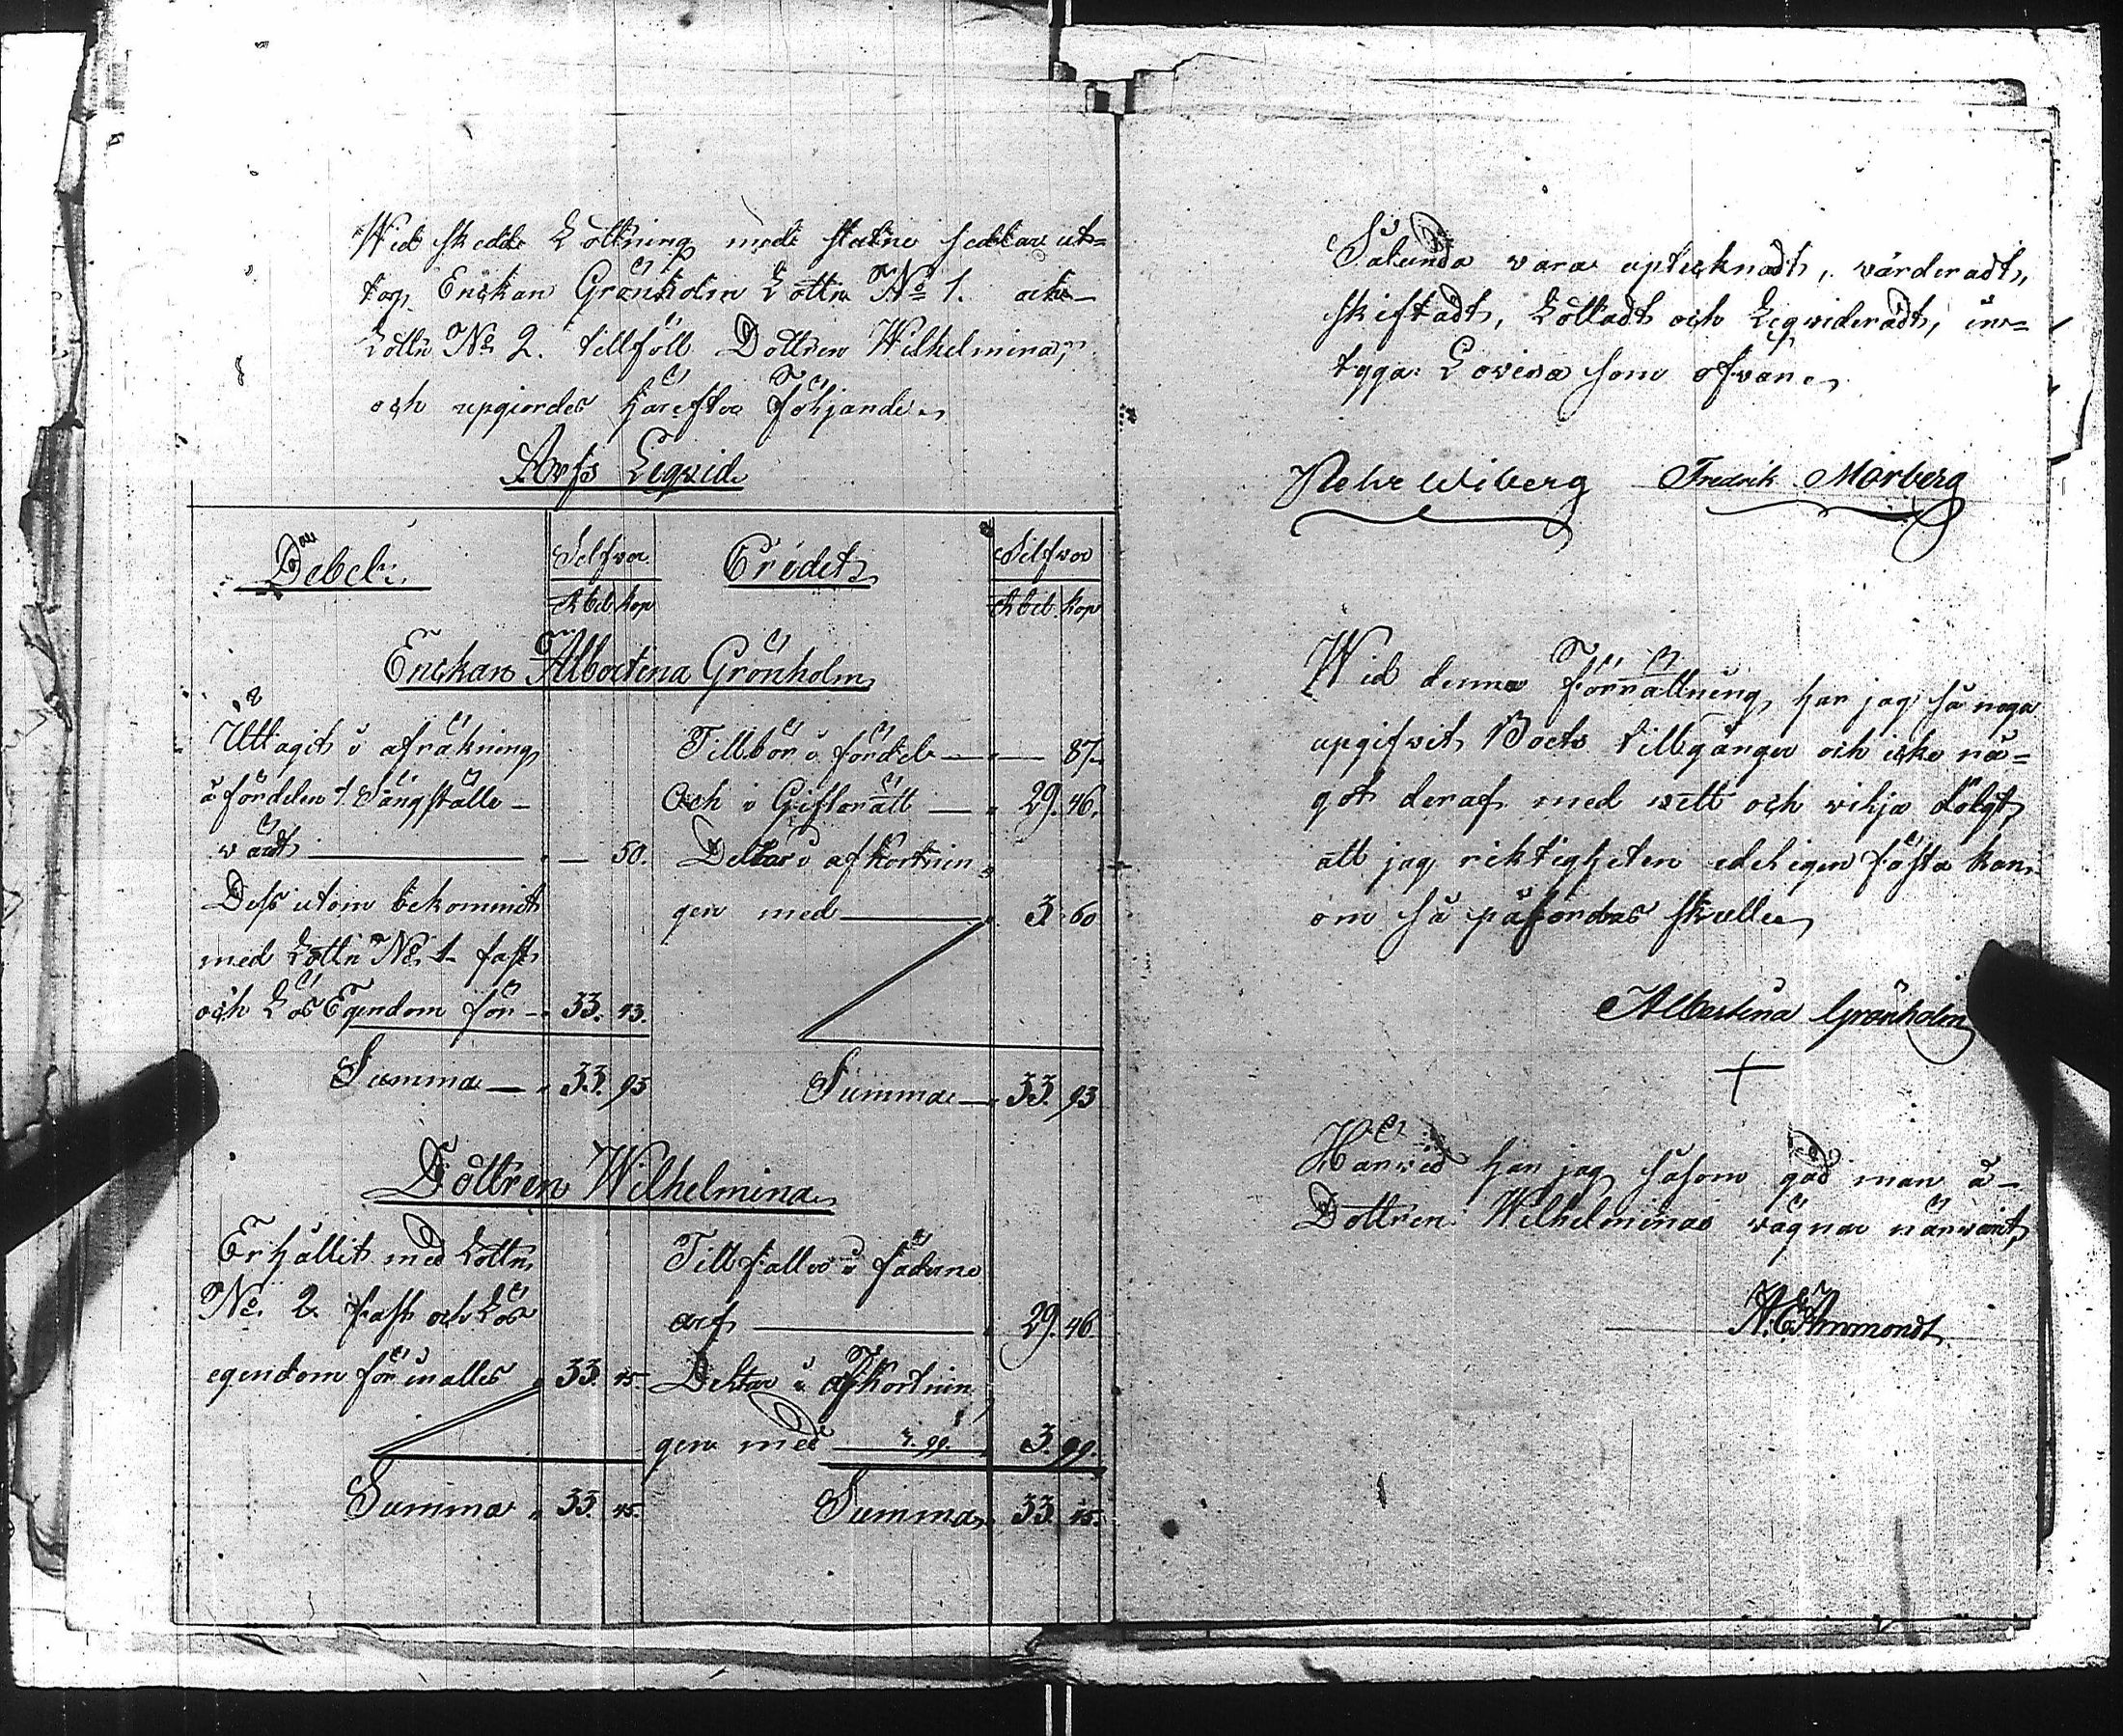 Wid skedde Lottning med slutne sedlar ut=
tog Enckan Grönholm Lotten No 1. och
Lotten No 2. tillföll Dottren Wilhelmina,
och upgiordes härefter Följande
Arfs Liqvid
Debet. Silfver Credit Silfver
Rbel kop Rbel. kop
Enckan Albertina Grönholm
Uttagit i afräkning
å fördelen 1 Sängställe
värdt — 50.
Dess utom bekommit
med Lotten No 1 fast
och Lös Egendom för 33. 43.
Summa 33. 93
Tillbör i fördel — 87.
Och i Giftorätt 29. 46.
Deltar i afkortnin
gen med 3. 60
Summa 33. 93
Dottren Wilhelmina
Erhållit med Lotten
No 2 fast och Lös
egendom för in alles 33. 45.
Summa 33. 45.
Tillfaller i fäderne
arf 29. 46.
Deltar i Afkortnin
gen med 3. 99. 3. 99.
Summa 33. 45.
Sålunda vara uptecknadt, värderadt,
skiftadt, Lottadt och Liqviderādt, in=
tyga. Lovisa som ofvan
Petr Wiberg Fredrik Morberg
Wid denna Förrättning har jag så noga
upgifvit Boets tillgångar och icke nå=
got deraf med vett och vilja dolgt,
att jag riktigheten edeligen fästa kan,
om så påfordras skulle
Albertina Grönholm
+
Härvid har jag såsom god man å
Dottren Wilhelminas vägnar närvarit,
Ammondt